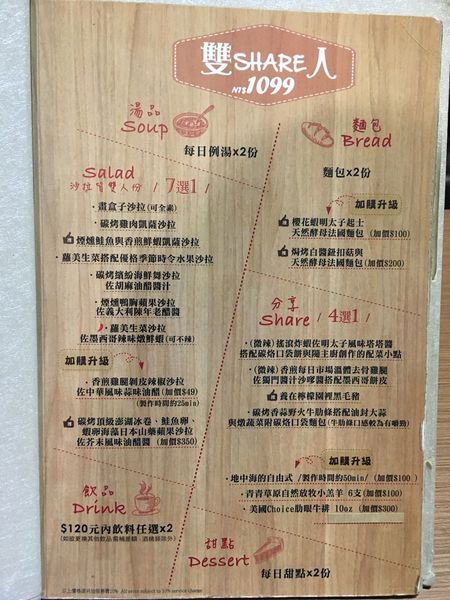 雙SHARE人
NT$1099
湯品
Soup
每日例湯x2份
麵包
Bread
麵包x2份
加購升級
櫻花蝦明太子起士
天然酵母法國麵包 (加價$100)
焗烤白醬鈕扣菇與
天然酵母法國麵包 (加價$200)
Salad
沙拉皆雙人份 / 7選1 /
・畫盒子沙拉(可全素)
・碳烤雞肉凱薩沙拉
煙燻鮭魚與香煎鮮蝦凱薩沙拉
・蘿美生菜搭配優格季節時令水果沙拉
・碳烤繽紛海鮮舞沙拉
佐胡麻油醋醬汁
・煙燻鴨胸蘋果沙拉
佐義大利陳年老醋醬
・蘿美生菜沙拉
佐墨西哥辣味燉鮮蝦(可不辣)
加購升級
・香煎雞腿剝皮辣椒沙拉
佐中華風味蒜味油醋 (加價$49)
(製作時間約25min)
碳烤頂級澎湖冰卷、鮭魚卵、
蝦卵海藻日本山藥蘋果沙拉
佐芥末風味油醋醬 (加價$350)
分享
Share / 4選1 /
・(微辣)搖滾炸蝦佐明太子風味塔塔醬
搭配碳烙口袋餅與隨主廚創作的配菜小點
・(微辣)香煎每日市場溫體去骨雞腿
佐獨門醬汁沙嗲醬搭配墨西哥餅皮
義在檸檬園裡黑毛豬
・碳烤香蒜野火牛肋條搭配油封大蒜
與燉蔬菜附碳烙口袋麵包(牛肋條口感較為有嚼勁)
加購升級
・地中海的自由式 /製作時間約50min/ (加價$100 )
・青青草原自然放牧小羔羊 6支(加價$100)
・美國Choice肋眼牛排 10oz (加價$300)
飲品
Drink
$120元內飲料任選x2
(如欲更換其他飲品需補差額,酒精類除外)
甜點
Dessert
每日甜點x2份
以上價格須另加服務費10% All price subject to 10% service charge